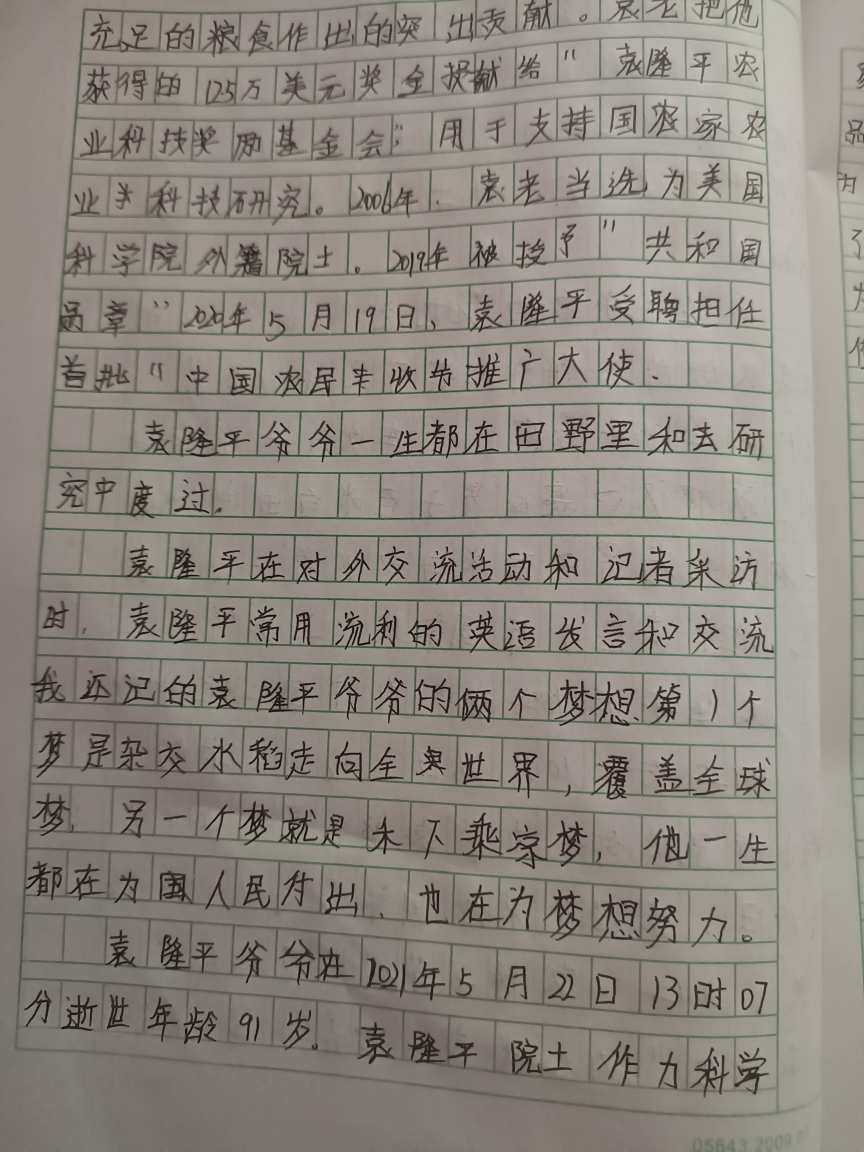 充足的粮食作出的突出贡献。袁老把他
获得的125万美元奖金捐献给"袁隆平农
业科技奖励基金会"用于支持国家农
业科技研究。2006年.袁老当选为美国
科学院外籍院士。2019年被授予"共和国
勋章"2020年5月19日、袁隆平受聘担任
首批"中国农民丰收节推广大使.
袁隆平爷爷一生都在田野里和去研
究中度过.
袁隆平在对外交流活动和记者采访
时.袁隆平常用流利的英语发言和交流
我还记的袁隆平爷爷的俩个梦想.第1个
梦是杂交水稻走向全世界,覆盖全球
梦.另一个梦就是禾下乘凉梦,他一生
都在为国人民付出、也在为梦想努力。
袁隆平爷爷在2021年5月22日13时07
分逝世年龄91岁。袁隆平院士作为科学
05643.2009